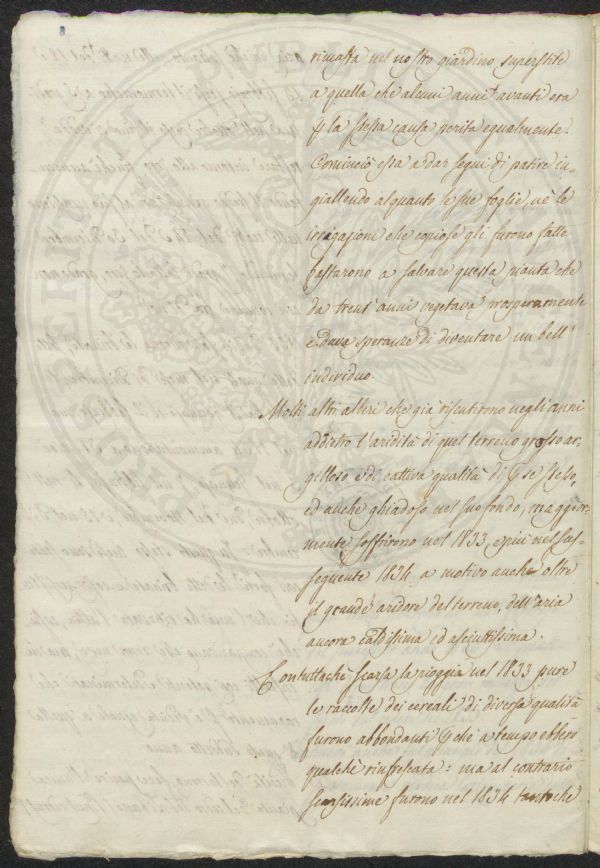 8
rimasta nel nostro giardino, superstite
a quella che alcuni anni avanti era
p la stessa causa perita egualmente.
Cominciò esta a dar segni di patire in-
giallendo alquanto le sue foglie, nè le
irrigazioni che copiose gli furono fatte
bastarono a salvare questa pianta che
da trent'anni vegetava prosperamente
e dava speranze di diventare un bell'
individuo.
Molti altri alberi che già risentirono negli anni
addietro l'aridità di quel terreno grosso ar-
gilloso e di cattiva qualità di p se stesso,
ed anche ghiadoso nel suo fondo, maggior-
mente soffrirono nel 1833, e più nel sus-
seguente 1834 a motivo anche oltre
il grande aridore del terreno, dell'aria
ancora caldissima ed asciuttissima.
Contuttachè scarsa la pioggia nel 1833 pure
le raccolte dei cereali di diversa qualità
furono abbondanti p chè a tempo ebbero
qualche rinfrescata: ma al contrario
scarsissime furono nel 1834 tantoche